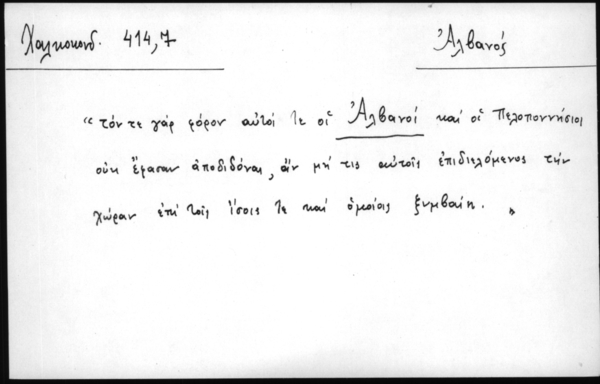 Χαλκοκονδ. 414,7
Ἀλβανός
“τόν τε γάρ φόρον αὐτοί τε οἱ Ἀλβανοί καί οἱ Πελοποννήσιοι
οὐκ ἔφασαν ἀποδιδόναι, ἄν μή τις αὐτοῖς ἐπιδιελόμενος τήν
χώραν ἐπί τοῖς ἴσοις τε καί ὁμοίοις ξυμβαίη. ”